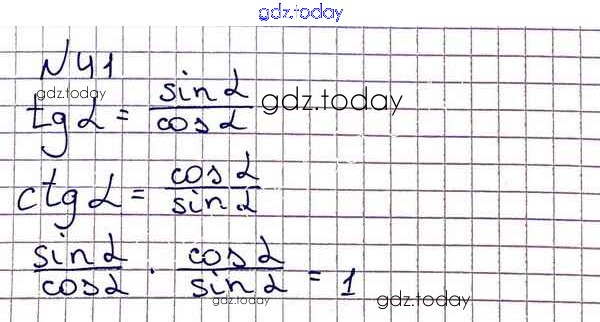 gdz.today
N41
gdz.today
tg α = sin α / cos α gdz.today
ctg α = cos α / sin α
sin α / cos α · cos α / sin α = 1
gdz.today gdz.today